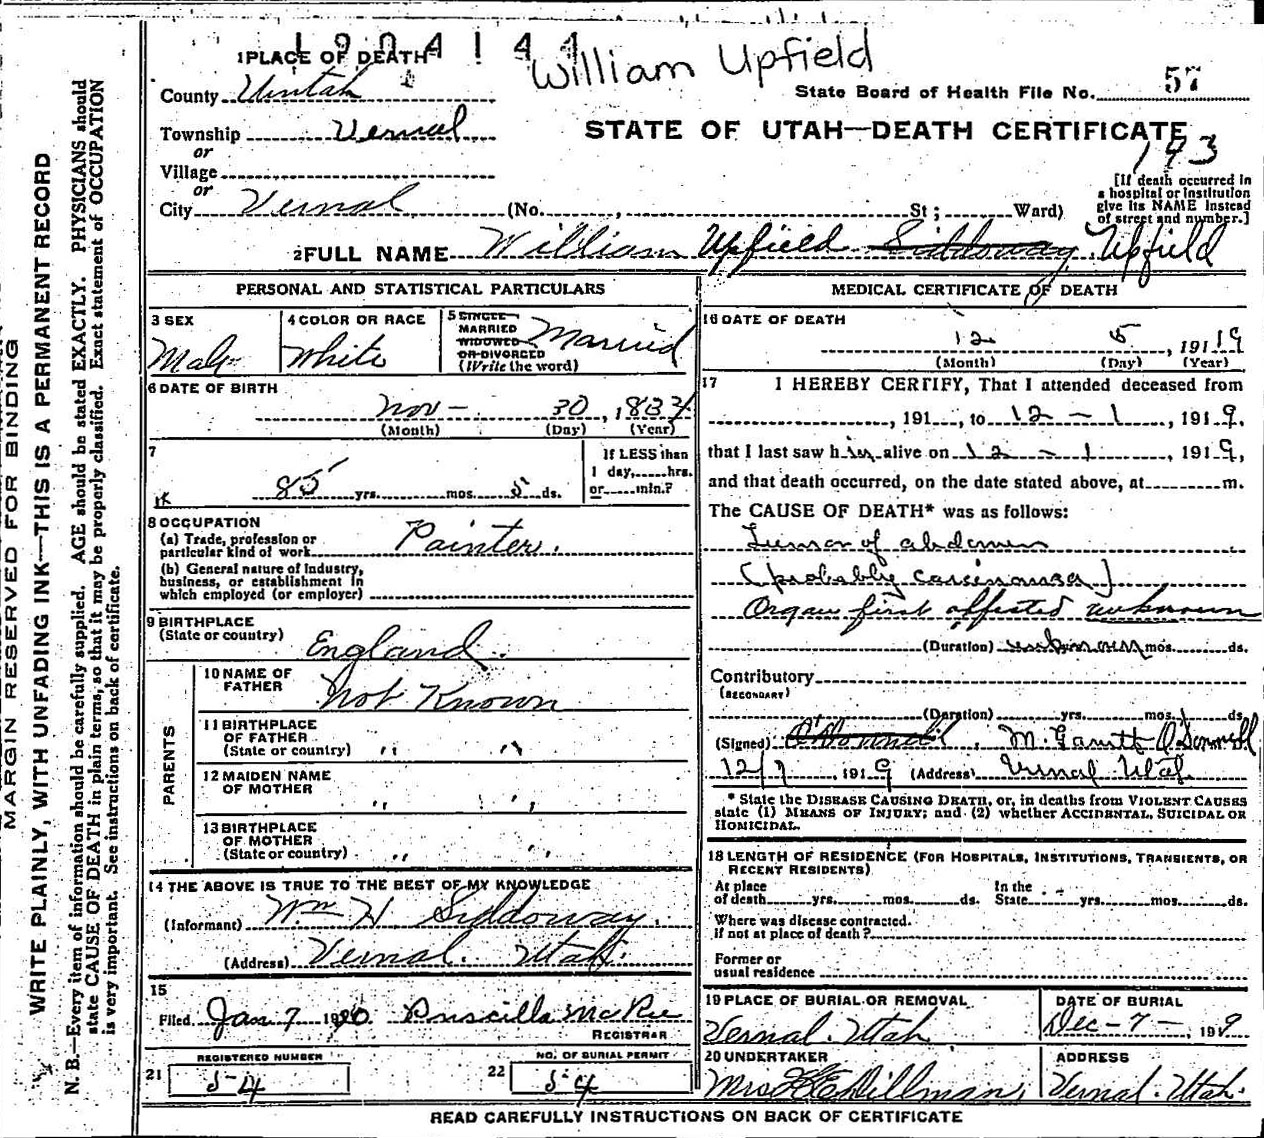 1904144
William Upfield
1 PLACE OF DEATH
County Uintah
State Board of Health File No. 57
Township Vernal
STATE OF UTAH—DEATH CERTIFICATE
193
or
Village
or
City Vernal (No. , St; Ward)
[If death occurred in a hospital or institution give its NAME instead of street and number.]
2 FULL NAME William Upfield Siddoway Upfield
PERSONAL AND STATISTICAL PARTICULARS
3 SEX
Male
4 COLOR OR RACE
White
5 SINGLE
MARRIED
WIDOWED
OR DIVORCED
(Write the word)
Married
6 DATE OF BIRTH
Nov - 30, 1834
(Month) (Day) (Year)
7
85 yrs. mos. 5 ds.
If LESS than
1 day, hrs.
or min.?
8 OCCUPATION
(a) Trade, profession or
particular kind of work Painter.
(b) General nature of industry,
business, or establishment in
which employed (or employer)
9 BIRTHPLACE
(State or country) England.
PARENTS
10 NAME OF
FATHER Not Known
11 BIRTHPLACE
OF FATHER
(State or country) " "
12 MAIDEN NAME
OF MOTHER " "
13 BIRTHPLACE
OF MOTHER
(State or country) " "
14 THE ABOVE IS TRUE TO THE BEST OF MY KNOWLEDGE
(Informant) Wm H Siddoway.
(Address) Vernal. Utah.
15
Filed Jan 7 1920 Priscilla McKee
REGISTRAR
REGISTERED NUMBER
21 54
NO. OF BURIAL PERMIT
22 54
MEDICAL CERTIFICATE OF DEATH
16 DATE OF DEATH
12 5, 191 19
(Month) (Day) (Year)
17 I HEREBY CERTIFY, That I attended deceased from
, 191 , to 12 - 1, 1919.
that I last saw him alive on 12 - 1, 1919,
and that death occurred, on the date stated above, at m.
The CAUSE OF DEATH* was as follows:
Tumor of abdomen
(probably carcinoma)
Organ first affected unknown
(Duration) unknown mos. ds.
Contributory
(SECONDARY)
(Duration) yrs. mos. ds.
(Signed) O'Donnell, M. Garrett O'Donnell
12/7, 1919 (Address) Vernal Utah
* State the DISEASE CAUSING DEATH, or, in deaths from VIOLENT CAUSES
state (1) MEANS OF INJURY; and (2) whether ACCIDENTAL, SUICIDAL OR
HOMICIDAL.
18 LENGTH OF RESIDENCE (FOR HOSPITALS, INSTITUTIONS, TRANSIENTS, OR
RECENT RESIDENTS)
At place
of death yrs. mos. ds.
In the
State yrs. mos. ds.
Where was disease contracted.
if not at place of death?
Former or
usual residence
19 PLACE OF BURIAL OR REMOVAL
Vernal. Utah
DATE OF BURIAL
Dec - 7 -, 1919
20 UNDERTAKER
Dillman,
ADDRESS
Vernal. Utah.
READ CAREFULLY INSTRUCTIONS ON BACK OF CERTIFICATE
MARGIN RESERVED FOR BINDING
WRITE PLAINLY, WITH UNFADING INK—THIS IS A PERMANENT RECORD
N. B.—Every item of information should be carefully supplied. AGE should be stated EXACTLY. PHYSICIANS should
state CAUSE OF DEATH in plain terms, so that it may be properly classified. Exact statement of OCCUPATION
is very important. See instructions on back of certificate.